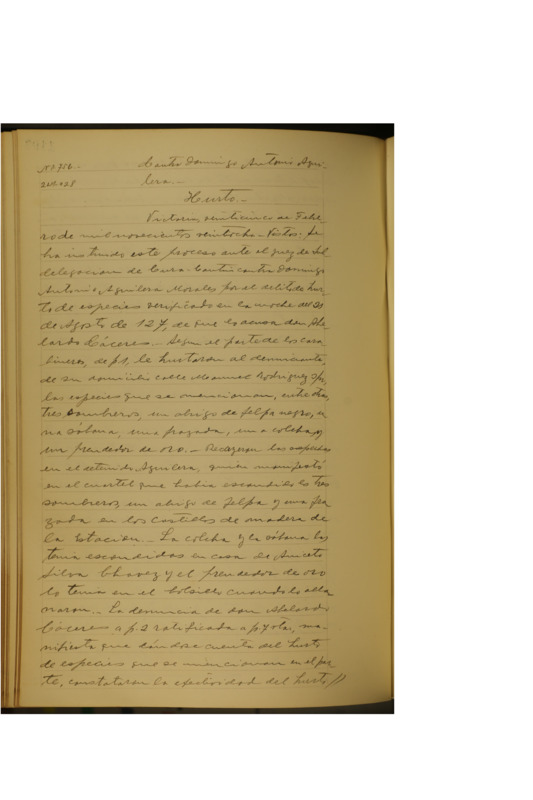 Nº 716.- Contra Domingo Antonio Agui-
lera.-
Hurto.-
Victoria, veinticinco de Febre-
ro de mil novecientos veintiocho.- Vistos: Se
ha instruido este proceso ante el juez de Sub
delegacion de Cura-Cautin contra Domingo
Antonio Aguilera Morales por el delito de hur-
to de especies verificado en la noche del 20
de Agosto de 127, de que lo acusa don Abe-
lardo Cáceres.- Segun el parte de los cara
bineros, de p1, le hurtaron al denunciante
de su domicilio calle Manuel Rodriguez s/n,
las especies que se mencionan, entre otras,
tres sombreros, un abrigo de felpa negro, u
na sábana, una frazada, una colcha y
un prendedor de oro.- Recayeron las sospechas
en el detenido Aguilera, quien manifestó
en el cuartel que habia escondido los tres
sombreros, un abrigo de felpa y una fra
zada en los castillos de madera de
la Estacion.- La colcha y la sábana las
tenia escondidas en casa de Aniceto
Silva Chavez y el prendedor de oro
lo tenia en el bolsillo cuando lo alla
naron.- La denuncia de don Abelardo
Cáceres a p.2 ratificada a p.7 vta, ma-
nifiesta que dándose cuenta del hurto
de especies que se mencionan en el par
te, constataron la efectividad del hurto //